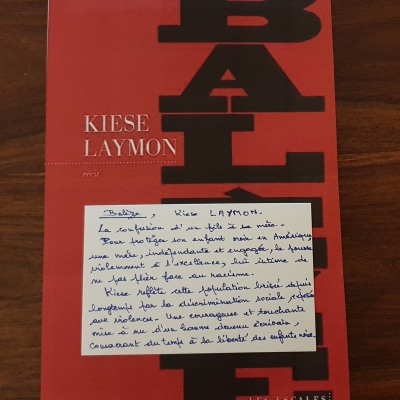 BALÈZE
KIESE
LAYMON
récit
Balèze, Kiese LAYMON.
La confession d'un fils à sa mère.
Pour protéger son enfant noir en Amérique,
une mère, indépendante et engagée, le pousse
violemment à l'excellence, lui intime de
ne pas plier face au racisme.
Kiese reflète cette population brisée depuis
longtemps par la discrimination sociale, exposée
aux violences. Une courageuse et touchante
mise à nu d'un homme devenu écrivain,
consacrant du temps à la liberté des enfants noirs.
LES ESCALES